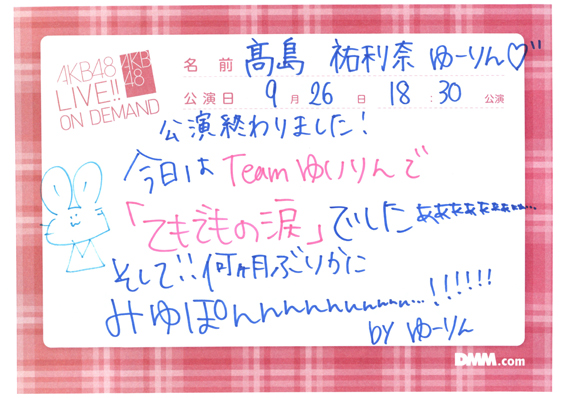 AKB48
LIVE!!
ON DEMAND
AKB
48
名 前 髙島 祐利奈 ゆーりん♡"
公演日 9 月 26 日 18 : 30 公演
公演終わりました!
今日は Team ゆいりんで
「てもでもの涙」でしたぁぁぁぁぁぁぁ...
そして!!何ヶ月ぶりかに
みゆぽんんんんんんんん...!!!!!!
by ゆーりん
DMM.com